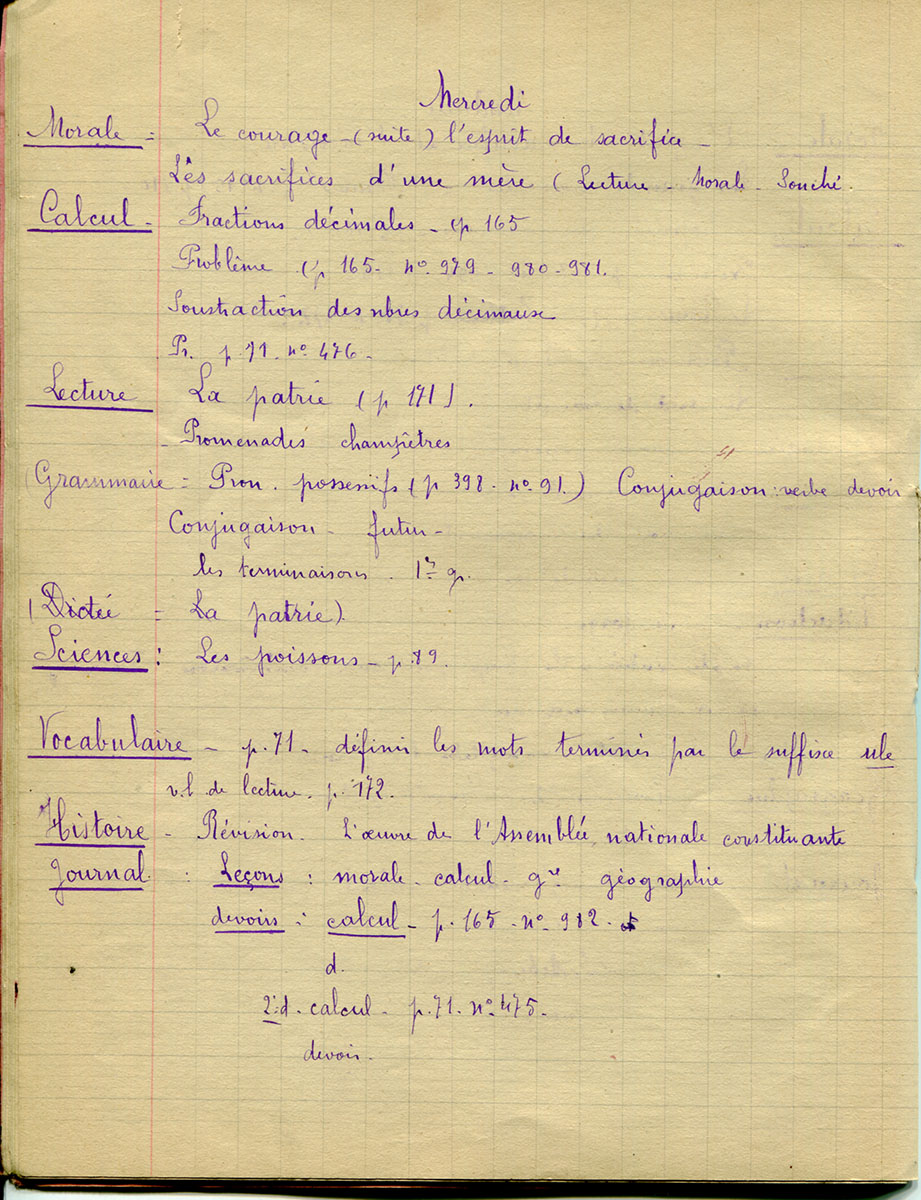 Mercredi
Morale = Le courage - (suite) l'esprit de sacrifice -
Les sacrifices d'une mère (Lecture - Morale - Souché.
Calcul - Fractions décimales - (p 165
Problème (p 165 - nº 979 - 980 - 981.
Soustraction des nbres décimaux
Pr. p. 71. nº 476 -
Lecture La patrie (p 171).
- Promenades champêtres
(Grammaire = Pron. possessifs (p 398 - nº 91.) Conjugaison : verbe devoir
Conjugaison - futur -
les terminaisons. 1er gr.
(Dictée = La patrie).
Sciences : Les poissons - p. 89.
Vocabulaire - p. 71 - définir les mots terminés par le suffixe ule
v.l. de lecture. p. 172.
Histoire - Révision. L'œuvre de l'Assemblée nationale constituante
Journal : Leçons : morale - calcul - gre géographie
devoirs : calcul - p. 165 - nº 982 -
d.
2e d. calcul - p. 71. nº 475 -
devoir.